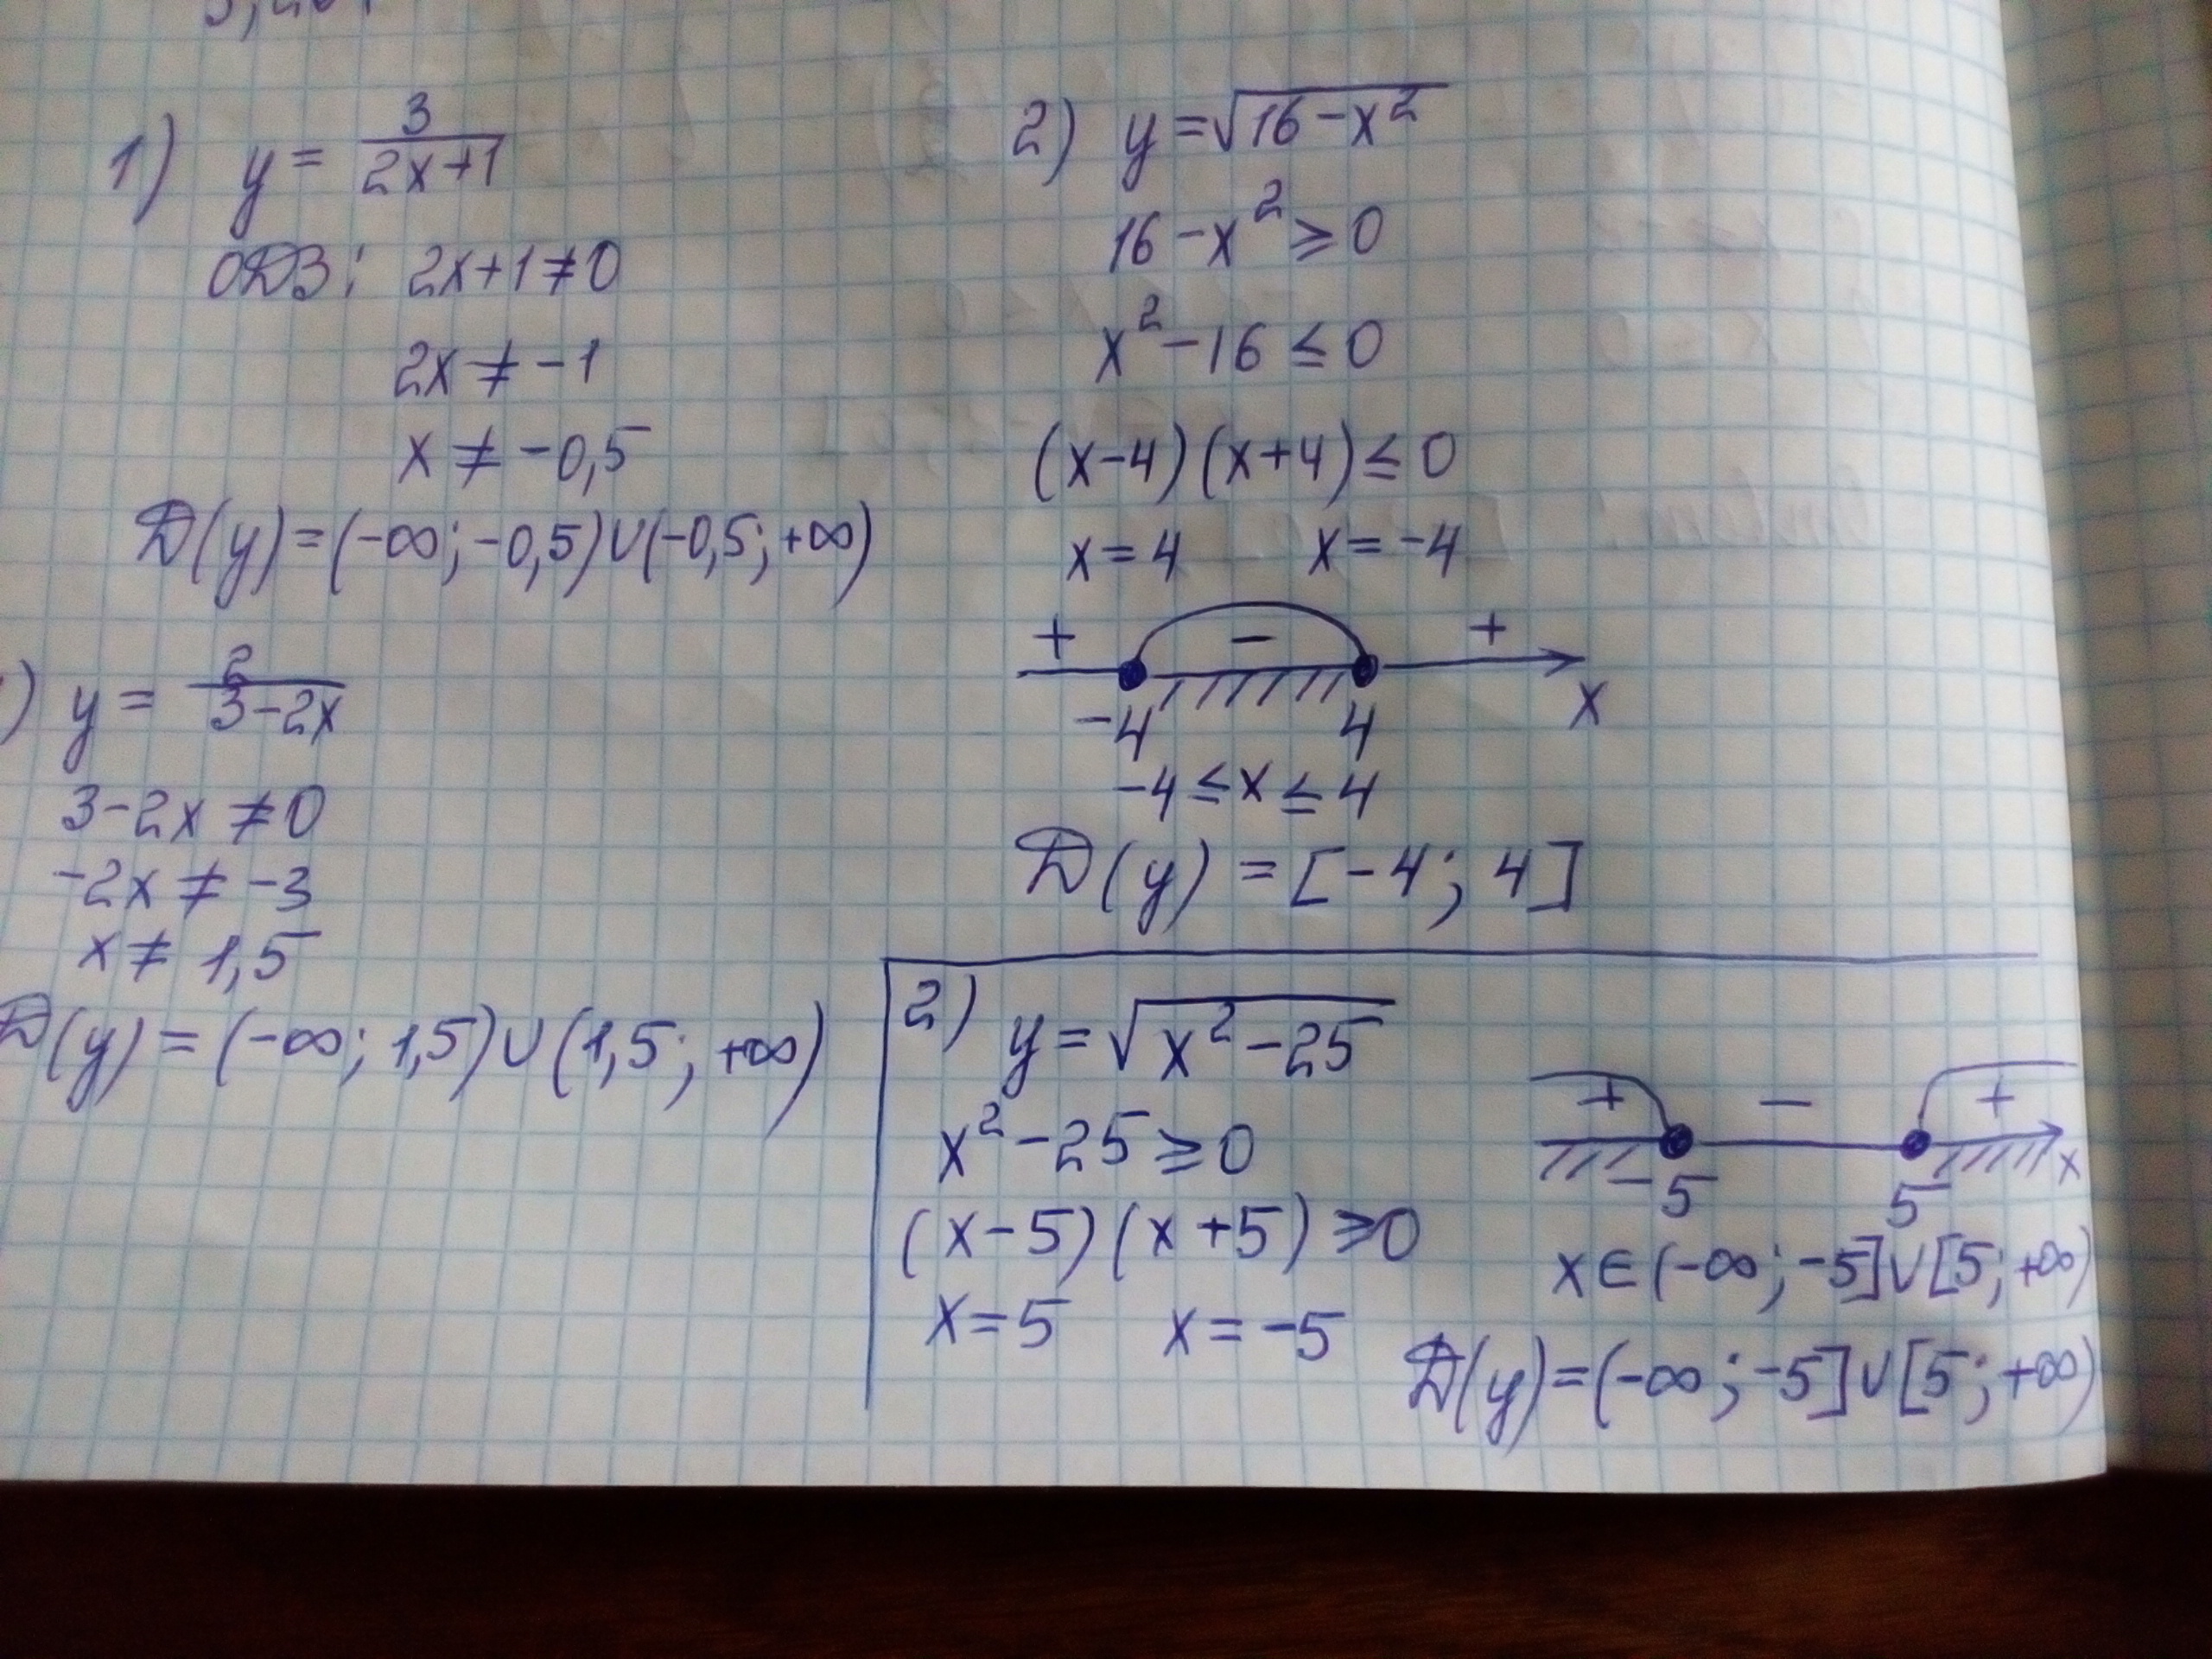 1) y = 3/(2x+1)
ОДЗ: 2x+1≠0
2x ≠ -1
x ≠ -0,5
D(y)=(-∞; -0,5)∪(-0,5; +∞)
) y = 2/(3-2x)
3-2x ≠0
-2x ≠ -3
x ≠ 1,5
D(y) = (-∞; 1,5)∪(1,5; +∞)
2) y=√(16-x²)
16-x² ⩾0
x²-16 ≤0
(x-4)(x+4)≤0
x=4 x=-4
+ - +
-4 4 x
-4≤x≤4
D(y) = [-4; 4]
2) y=√(x²-25)
x²-25⩾0
(x-5)(x+5)⩾0
x=5 x=-5
+ - +
-5 5 x
x∈(-∞; -5]∪[5; +∞)
D(y)=(-∞; -5]∪[5; +∞)